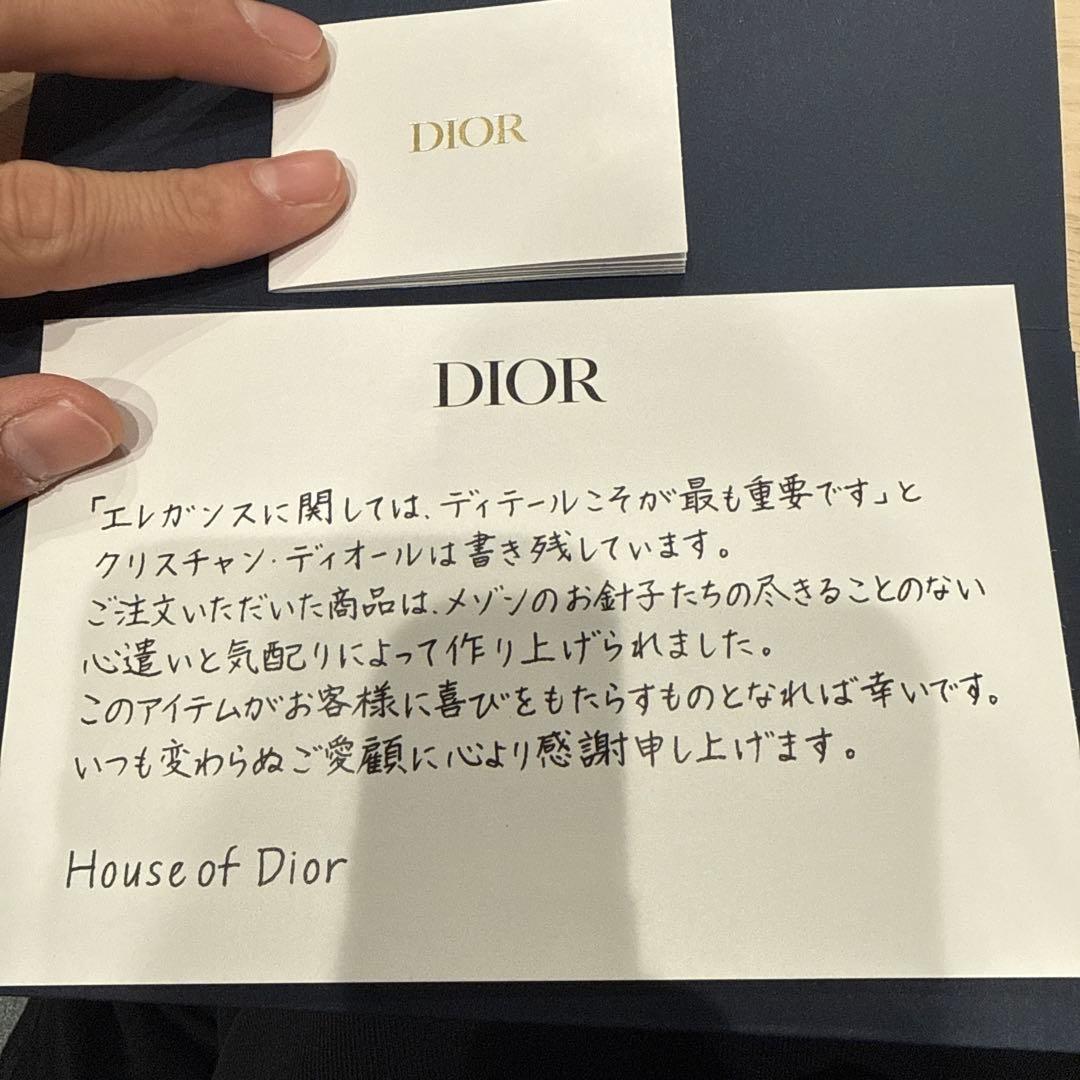 DIOR
DIOR
「エレガンスに関しては、ディテールこそが最も重要です」と
クリスチャン・ディオールは書き残しています。
ご注文いただいた商品は、メゾンのお針子たちの尽きることのない
心遣いと気配りによって作り上げられました。
このアイテムがお客様に喜びをもたらすものとなれば幸いです。
いつも変わらぬご愛顧に心より感謝申し上げます。
House of Dior